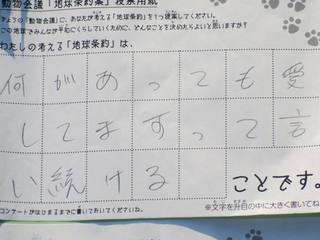 動物会議「地球条約案」投票用紙
きょうの「動物会議」に、あなたが考える「地球条約」を1つ提案してください。
この地球でみんなが平和にくらしていくために、どんなことを決めたらよいと思いますか?
わたしの考える「地球条約」は、
何があっても愛
してますって言
い続ける
ことです。
※文字を升目の中に大きく書いてね
コンサートがはじまるまでに書いておいてくださいね。